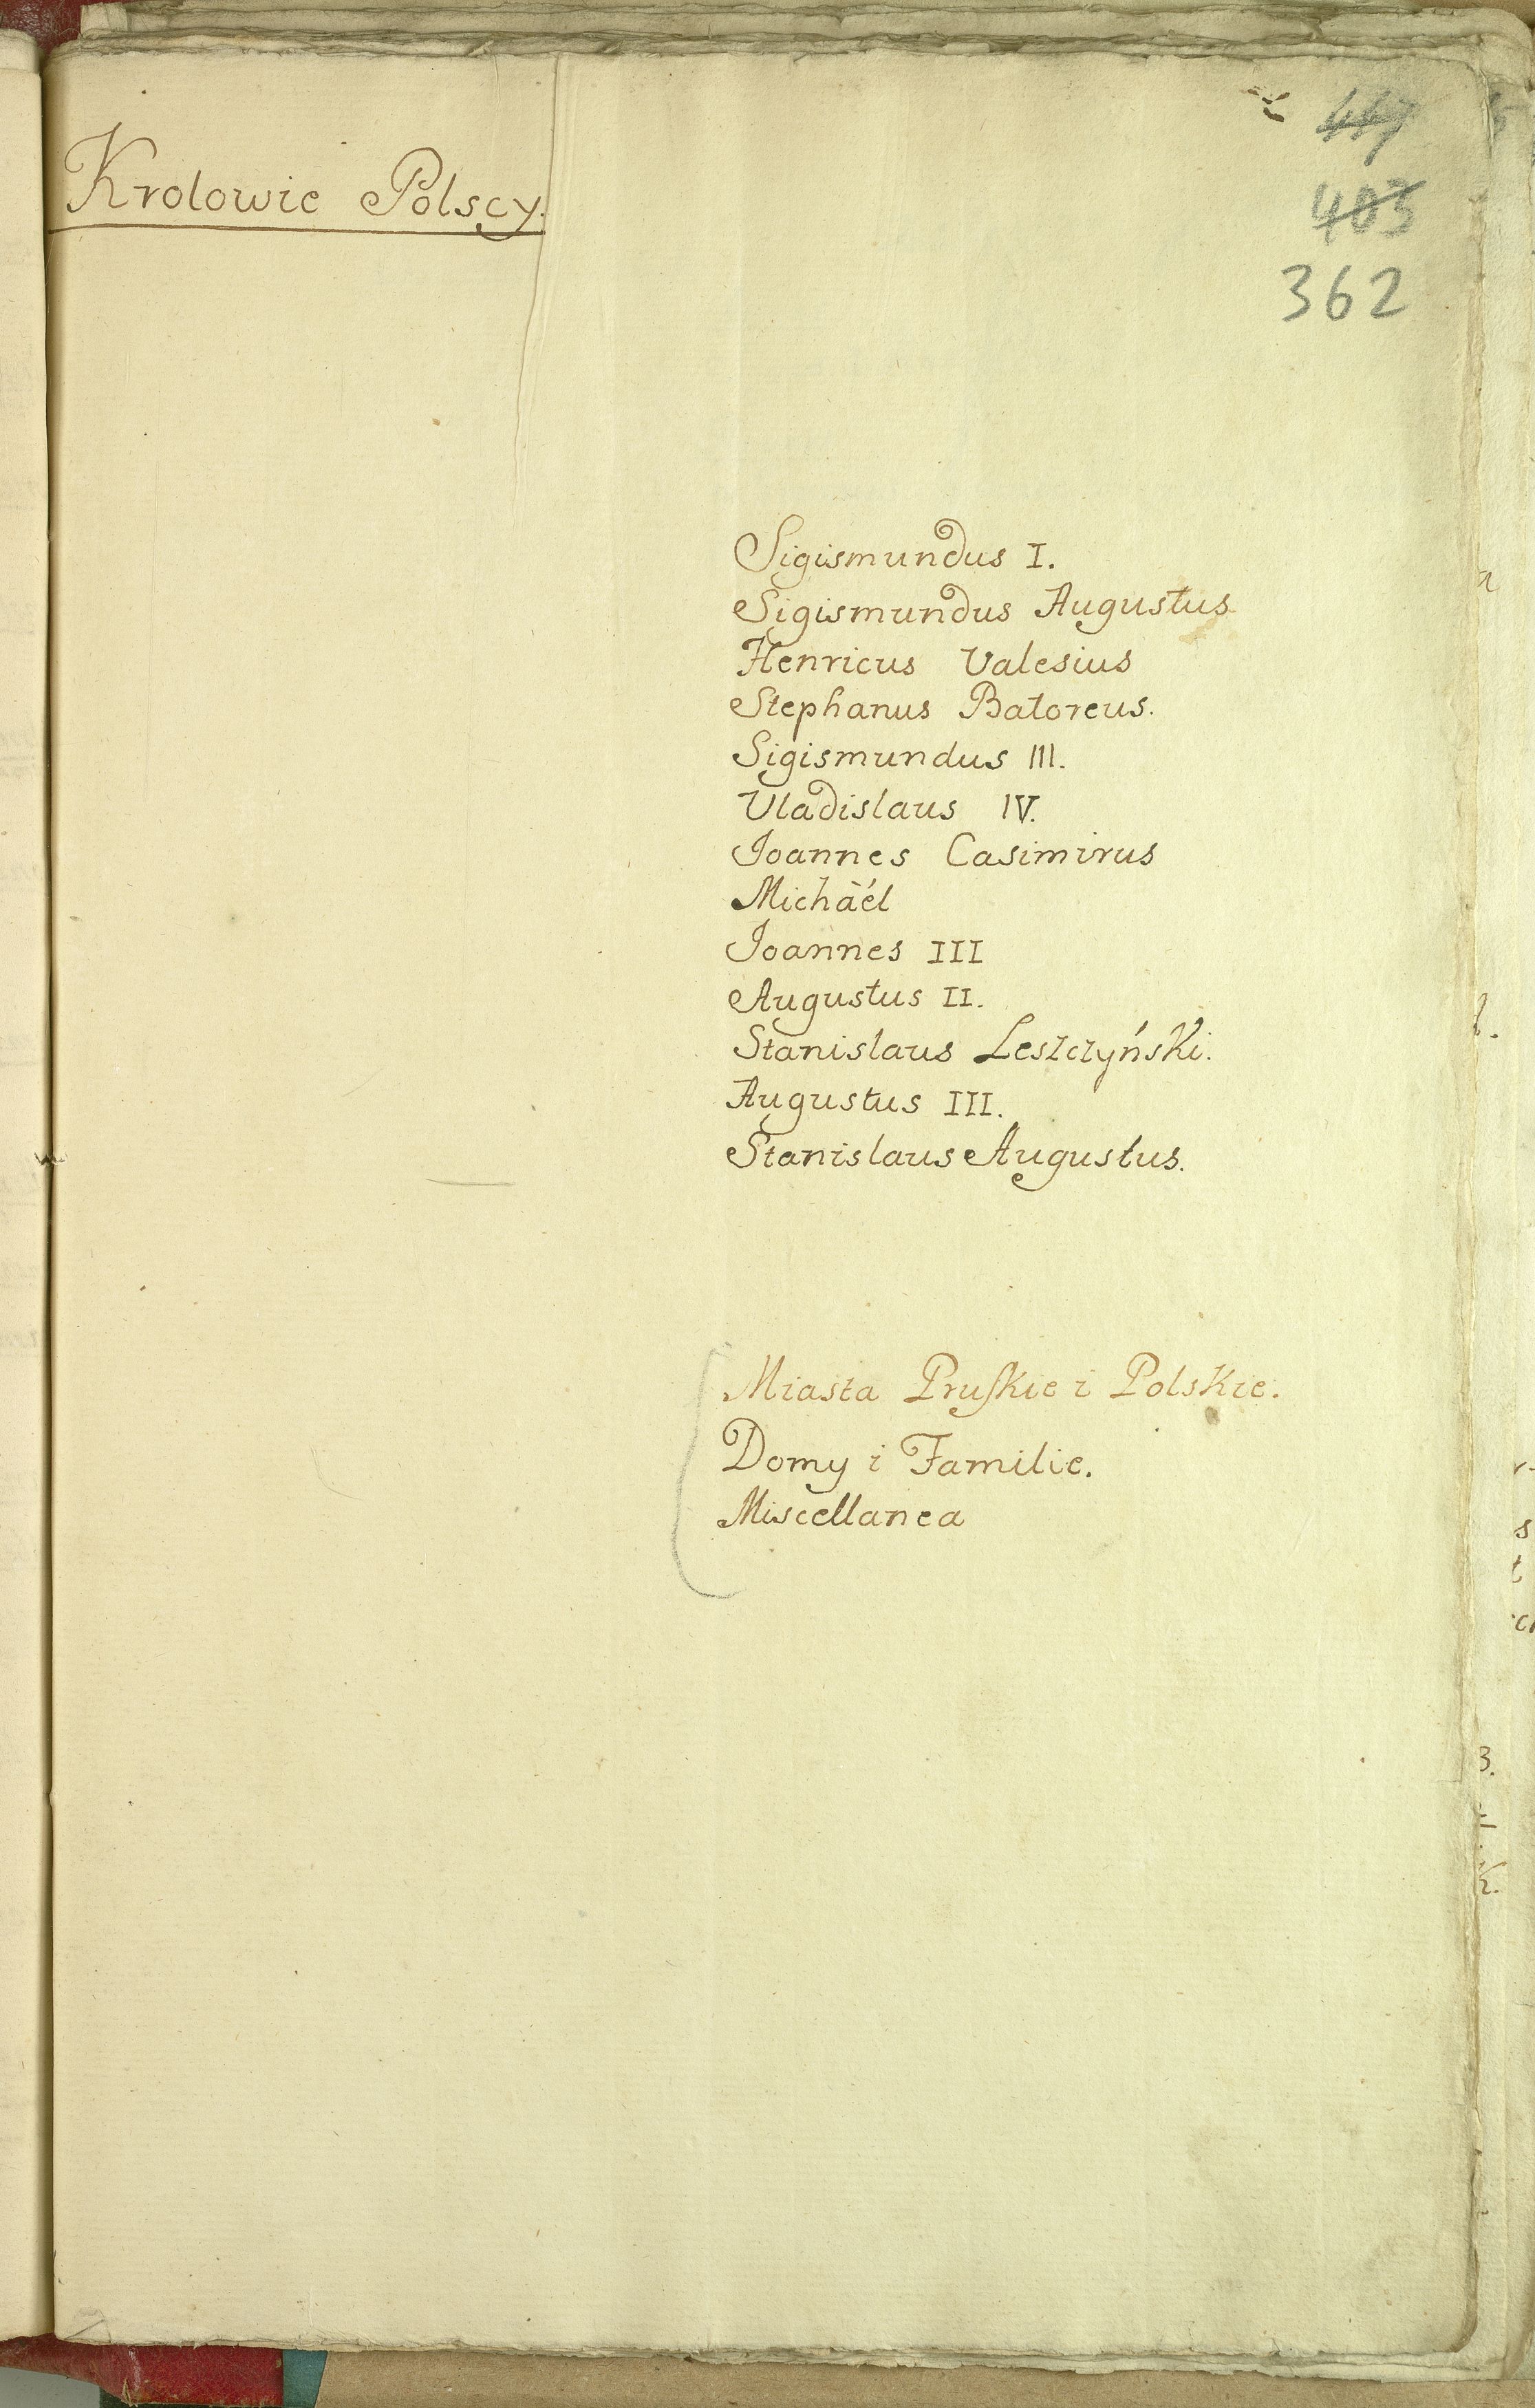 Krolowie Polscy.
447
403
362
Sigismundus I.
Sigismundus Augustus
Henricus Valesius
Stephanus Batoreus.
Sigismundus III.
Vladislaus IV.
Joannes Casimirus
Michäél
Joannes III
Augustus II.
Stanislaus Leszczyński.
Augustus III.
Stanislaus Augustus.
Miasta Pruſkie i Polskie.
Domy i Familie.
Miscellanea